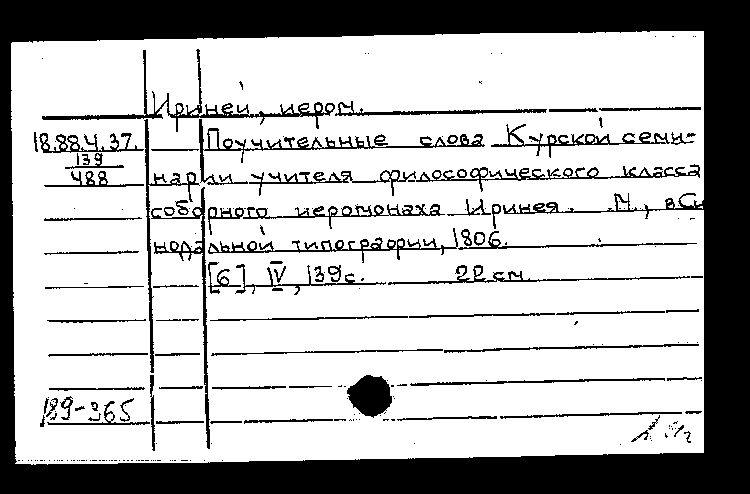 Ириней, иером.
18.88.4.37. Поучительные слова Курской семи-
139
488 нарии учителя философического класса
соборного иеромонаха Иринея. М., в Си
нодальной типографии, 1806.
[6], IV, 139 с. 22 см.
189-365